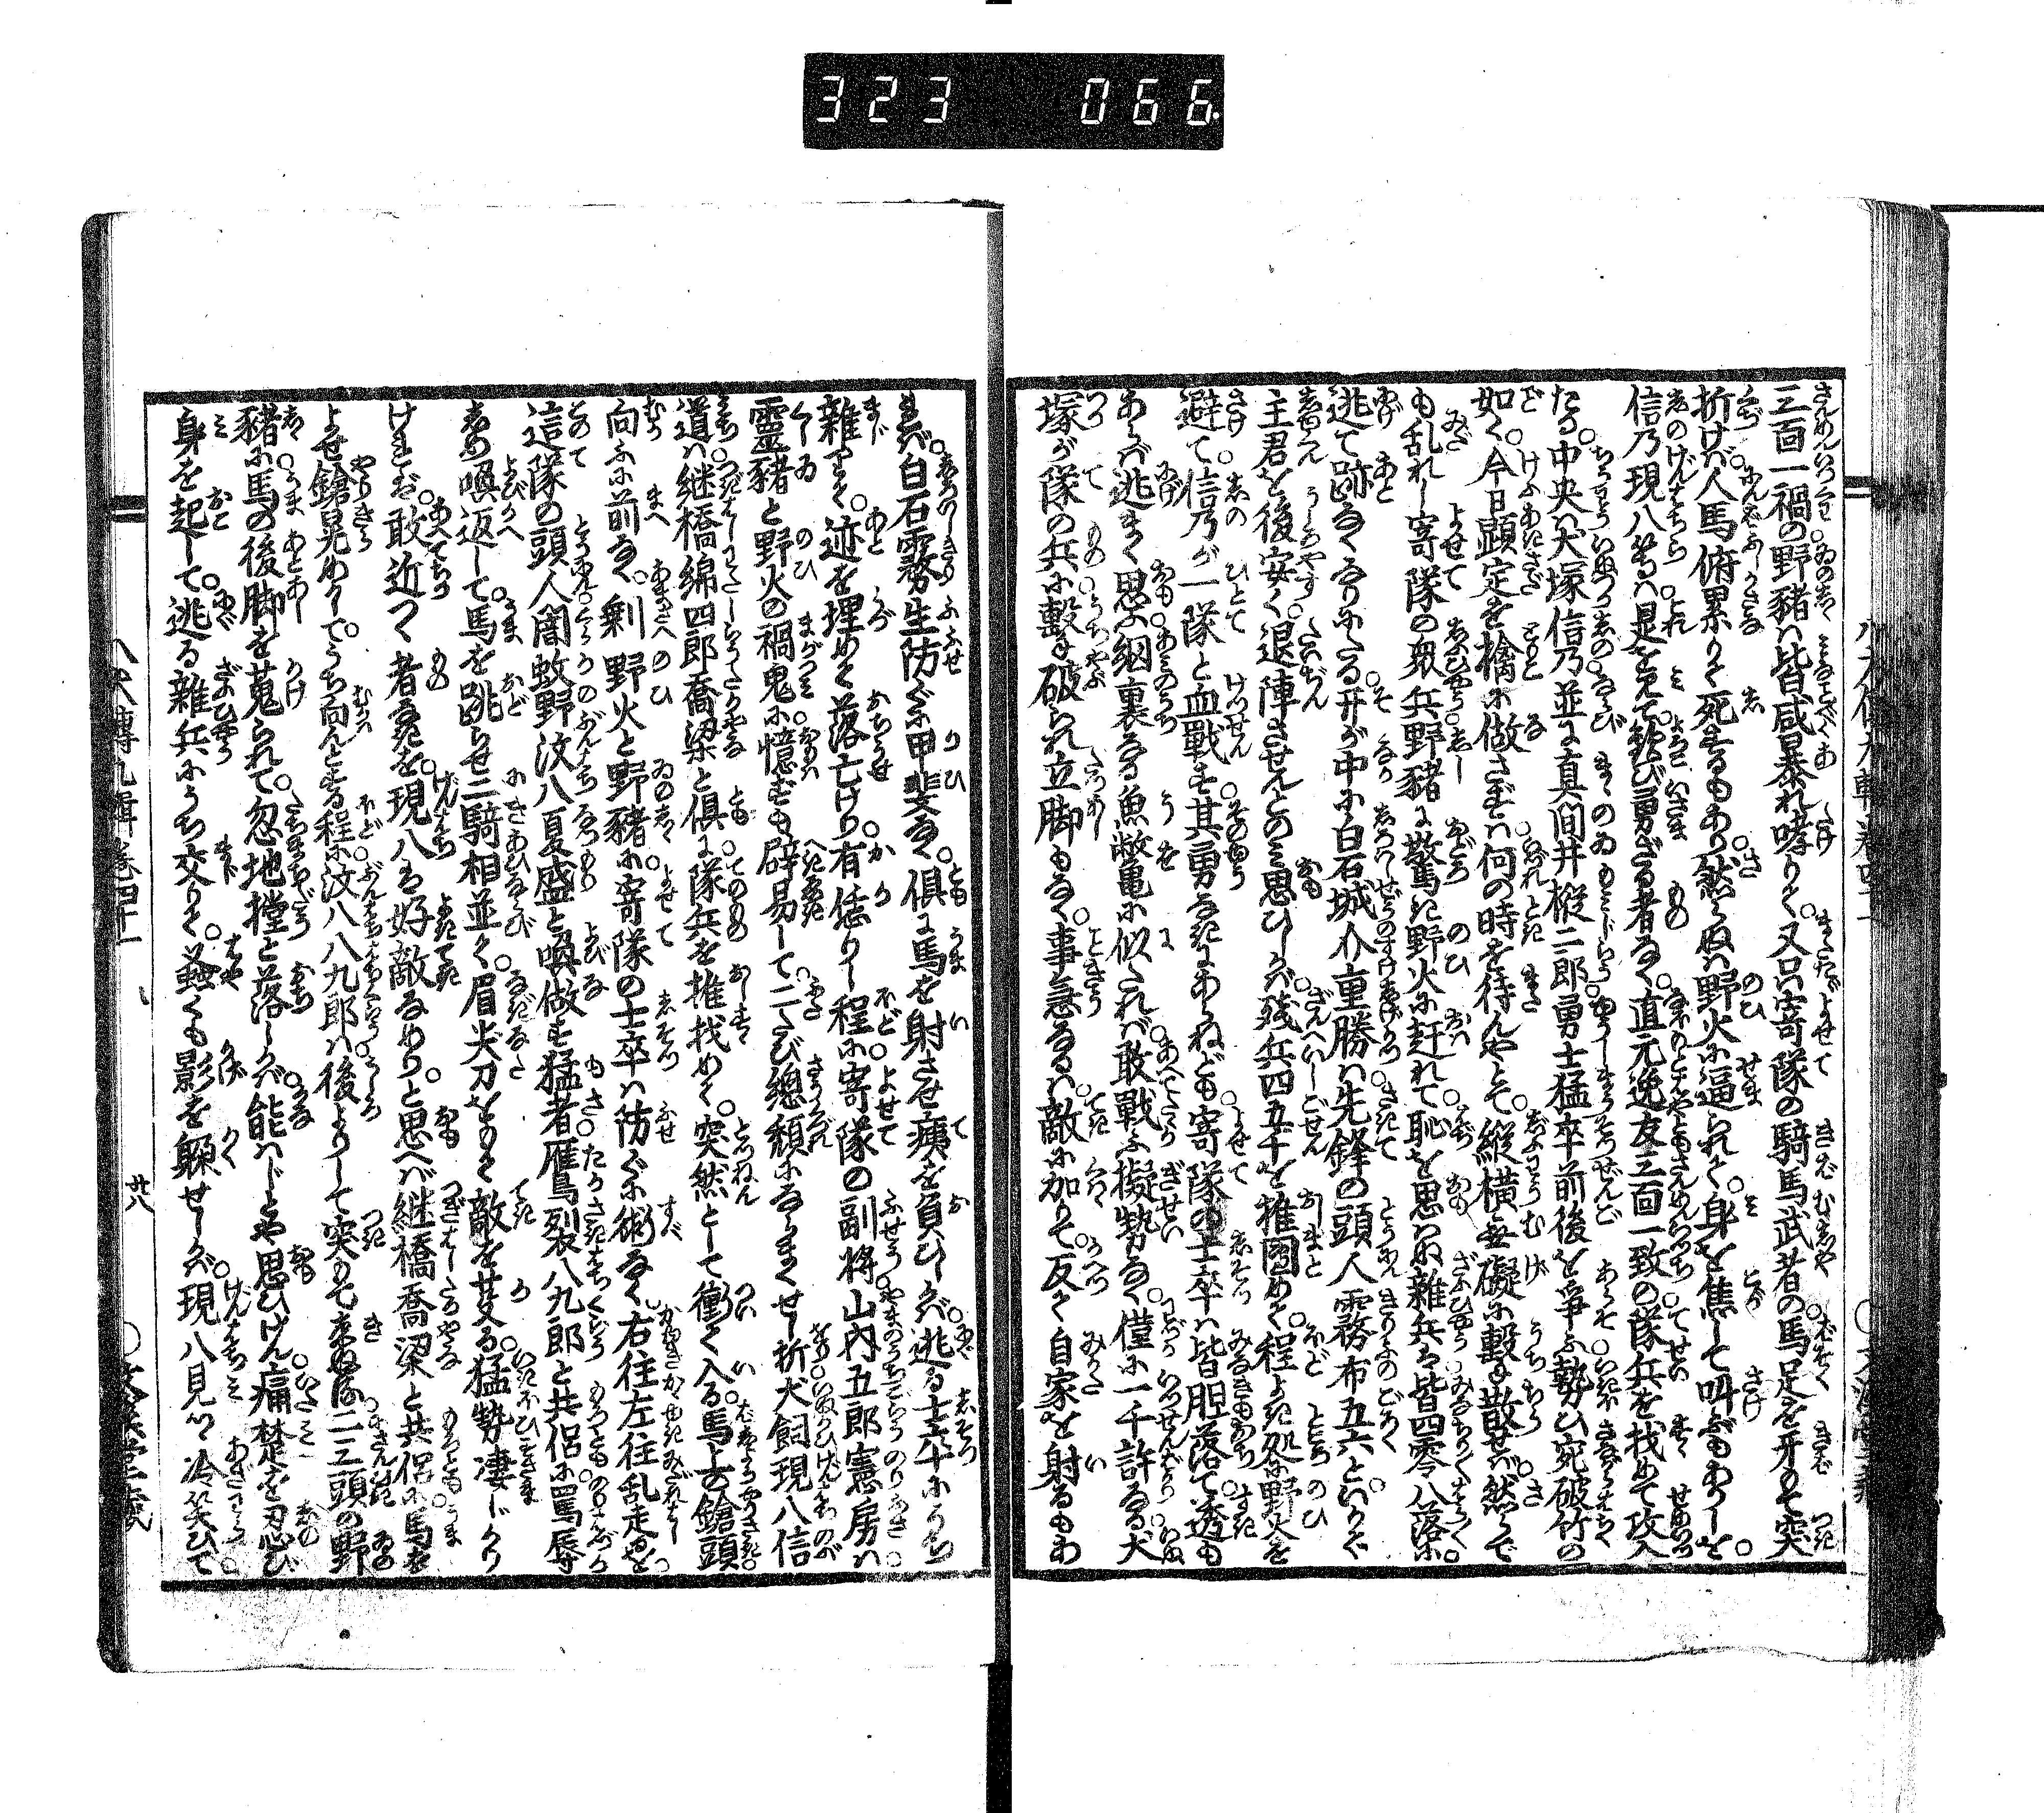 323 066
三百一禍の野豬は皆咸暴れ哮りて又只寄隊の騎馬武者の馬足を牙もて突
折けば人馬俯累りて死するもあり然らぬは野火に逼られて身を焦して叫ぶもありしを
信乃現八等は是を見て歓び勇ざる者なく直元逸友三面一致の隊兵を找めて攻入
たる中央は犬塚信乃並に真間井樅二郎勇士猛卒前後を争ふ勢ひ宛破竹の
如く今日顕定を擒に做さずは何の時を待んやとて縦横無礙に撃散せば然らで
も乱れし寄隊の衆兵野豬に驚き野火に赶れて恥を思はぬ雑兵は皆四零八落
逃て跡なくなりにたる开が中に白石城介重勝は先鋒の頭人霧布五六といふ
主君を後安く退陣させんとのみ思ひしかば残兵四五千を推圑めて程よき処に野火を
避て信乃が一隊と血戦す其勇なきにあらねども寄隊の士卒は皆胆落て透も
あらば逃まく思ふ網裏なる魚鼈に似たれば敢戦ふ擬勢なく僅に一千許なる犬
塚が隊の兵に撃破られ立脚もなく事急なるは敵に加りて反て自家を射るもあ
れば白石霧生防ぐに甲斐なく倶に馬を射させ痍を負ひしかば逃る士卒にうち
雑りて迹を埋めて落亡けり有恁りし程に寄隊の副将山内五郎憲房は
霊豬と野火の禍鬼に憶ずも辟易して二たび総頽にならまくせし折犬飼現八信
道は継橋綿四郎喬梁と倶に隊兵を推找めて突然として衝て入る馬上の鎗頭
向ふに前なく剰野火と野豬に寄隊の士卒は防ぐに術なく右往左往乱走るを
這隊の頭人闇蚊野汶八夏盛と喚做す猛者雁裂八九郎と共侶に罵辱
しめ喚返して馬を跳らせ二騎相並て眉尖刀をもて敵を芟る猛勢凄じかり
けれど敢近つく者なきを現八は好敵なめりと思へば継橋喬梁と共侶に馬を
よせ鎗晃めかしてうち向んとする程に汶八八九郎は後よりして突もて来ぬる二三頭の野
豬に馬の後脚を蒐られて忽地撲と落しかば能はじとや思ひけん痛楚を忍び
身を起して逃る雑兵にうち交りて蚤くも影を躱せしかば現八見つゝ冷笑ひて
八犬傳九輯卷四十一
廿八